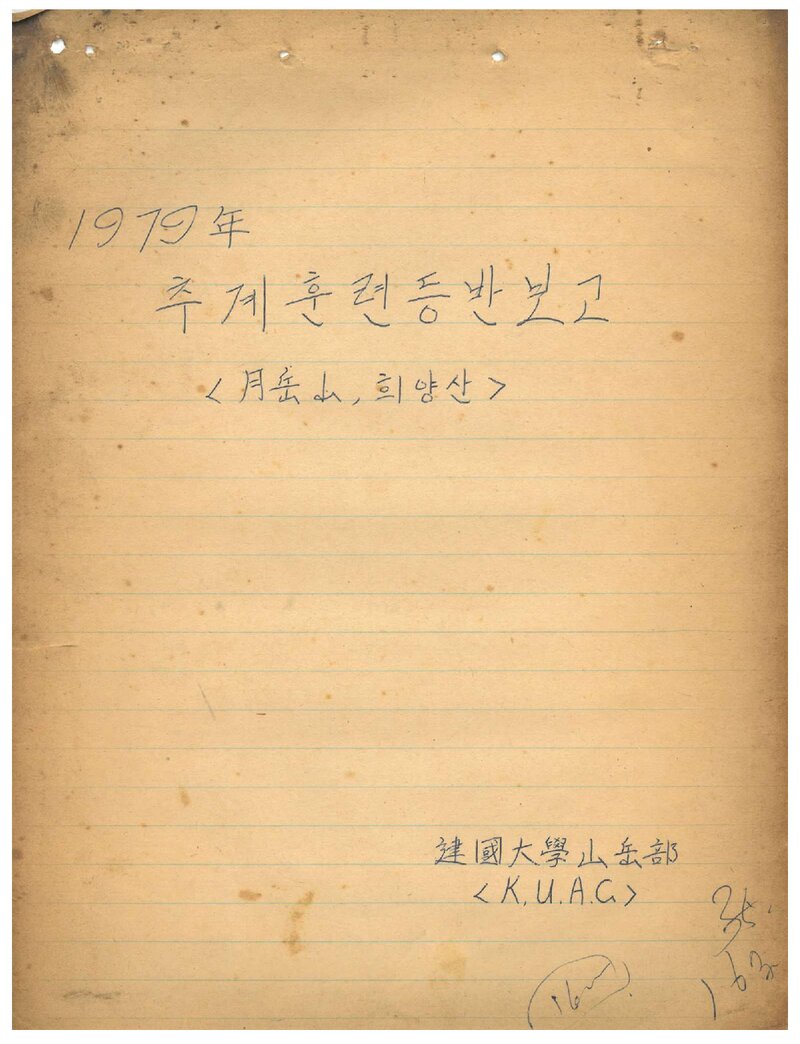 1979年
추계훈련등반보고
<月岳山, 희양산>
建國大學山岳部
<K.U.A.C>